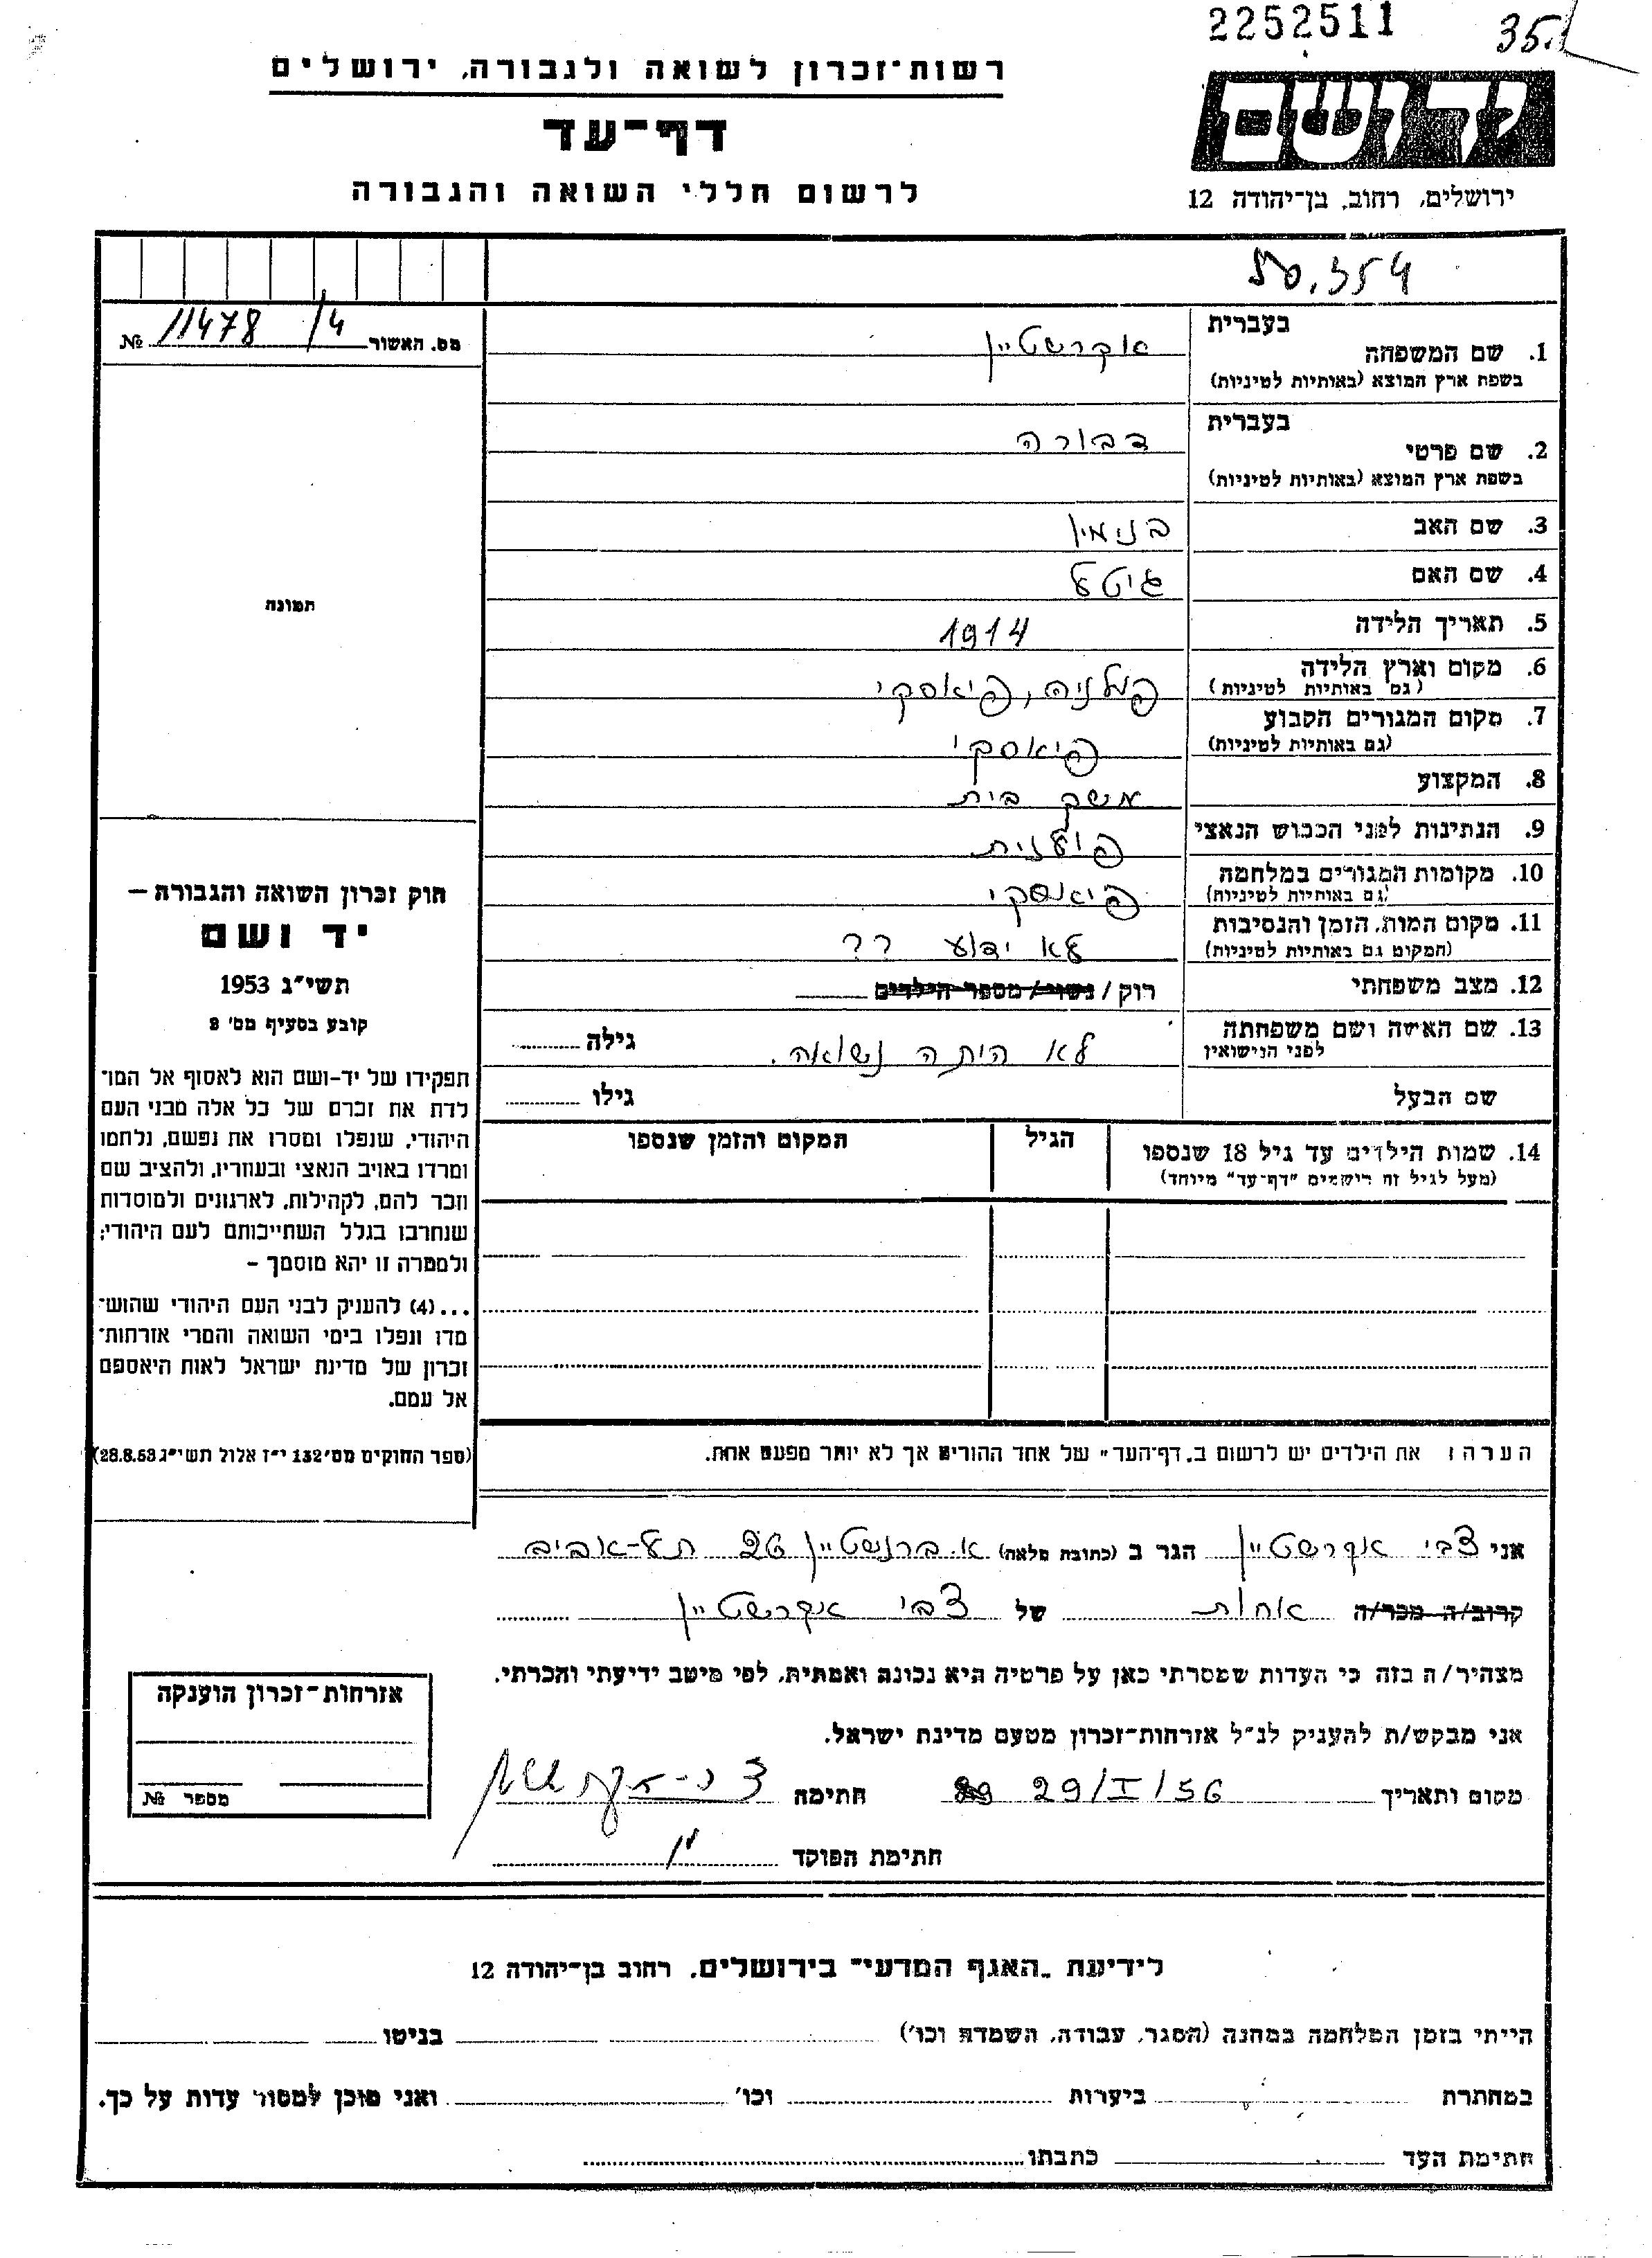 2252511
35
רשות־זכרון לשואה ולגבורה, ירושלים
דף־עד
לרשום חללי השואה והגבורה
ידושם
ירושלים, רחוב, בן־יהודה 12
50.354
מס. האשור 11478/4 №
תמונה
בעברית
1. שם המשפחה אקרשטיין
בשפת ארץ המוצא (באותיות לטיניות)
בעברית
2. שם פרטי דבורה
בשפת ארץ המוצא (באותיות לטיניות)
3. שם האב בנימין
4. שם האם גיטל
5. תאריך הלידה 1914
6. מקום וארץ הלידה פולניה, פיאסקי
(גם באותיות לטיניות)
7. מקום המגורים הקבוע פיאסקי
(גם באותיות לטיניות)
8. המקצוע משק בית
9. הנתינות לפני הכבוש הנאצי פולנית
10. מקומות המגורים במלחמה פיאסקי
(גם באותיות לטיניות)
11. מקום המות, הזמן והנסיבות לא ידוע ??
(המקום גם באותיות לטיניות)
12. מצב משפחתי רוק / נשוי / מספר הילדים
13. שם האישה ושם משפחתה לא היתה נשואה. גילה
לפני הנישואין
שם הבעל גילו
14. שמות הילדים עד גיל 18 שנספו הגיל המקום והזמן שנספו
(מעל לגיל זה רישמים "דף־עד" מיוחד)
חוק זכרון השואה והגבורה –
יד ושם
תשי"ג 1953
קובע בסעיף מס' 2
תפקידו של יד-ושם הוא לאסוף אל המו־
לדת את זכרם של כל אלה מבני העם
היהודי, שנפלו ומסרו את נפשם, נלחמו
ומרדו באויב הנאצי ובעוזריו, ולהציב שם
וזכר להם, לקהילות, לארגונים ולמוסדות
שנחרבו בגלל השתייכותם לעם היהודי;
ולמטרה זו יהא מוסמך –
...(4) להעניק לבני העם היהודי שהוש־
מדו ונפלו בימי השואה והמרי אזרחות־
זכרון של מדינת ישראל לאות היאספם
אל עמם.
(ספר החוקים מס' 132 י"ז אלול תשי"ג 28.8.53)
הערה: את הילדים יש לרשום ב„דף־העד" של אחד ההורים אך לא יותר מפעם אחת.
אני צבי אקרשטיין הגר ב (כתובת מלאה) א. ברנשטיין 26 תל-אביב
קרוב/ה מכר/ה אחות של צבי אקרשטיין
מצהיר/ה בזה כי העדות שמסרתי כאן על פרטיה היא נכונה ואמתית, לפי מיטב ידיעתי והכרתי.
אני מבקש/ת להעניק לנ"ל אזרחות־זכרון מטעם מדינת ישראל.
מקום ותאריך 29/I/56 חתימה
חתימת הפוקד
אזרחות־זכרון הוענקה
מספר №
לידיעת „האגף המדעי" בירושלים, רחוב בן־יהודה 12
הייתי בזמן המלחמה במחנה (הסגר, עבודה, השמדה וכו') בגיטו
במחתרת ביערות וכו' ואני מוכן למסור עדות על כך.
חתימת העד כתבתו